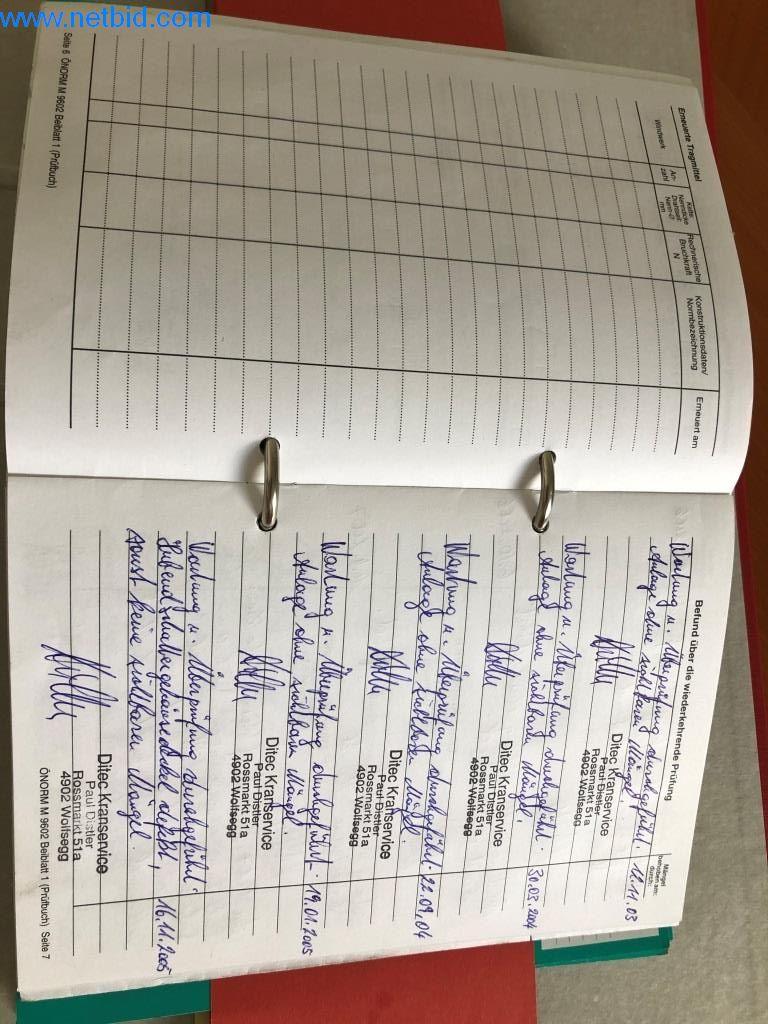 www.netbid.com
Erneuerte Tragmittel
Windwerk
An-
zahl
Kette
Nenndicke
Drahtseil:
Nenn-Ø
mm
Rechnerische
Bruchkraft
N
Konstruktionsdaten/
Normbezeichnung
Erneuert am
Seite 6 ÖNORM M 9602 Beiblatt 1 (Prüfbuch)
Befund über die wiederkehrende Prüfung
Mängel
behoben am:
durch:
Wartung u. Überprüfung durchgeführt. 12.11.03
Anlage ohne sichtbaren Mängel.
Ditec Kranservice
Paul Distler
Rossmarkt 51a
4902 Wolfsegg
Wartung u. Überprüfung durchgeführt. 30.03.2004
Anlage ohne sichtbaren Mängel.
Ditec Kranservice
Paul Distler
Rossmarkt 51a
4902 Wolfsegg
Wartung u. Überprüfung durchgeführt. 22.09.04
Anlage ohne sichtbaren Mängel.
Ditec Kranservice
Paul Distler
Rossmarkt 51a
4902 Wolfsegg
Wartung u. Überprüfung durchgeführt. 19.01.2005
Anlage ohne sichtbaren Mängel.
Ditec Kranservice
Paul Distler
Rossmarkt 51a
4902 Wolfsegg
Wartung u. Überprüfung durchgeführt.
16.11.2005
sonst keine sichtbaren Mängel.
Ditec Kranservice
Paul Distler
Rossmarkt 51a
4902 Wolfsegg
ÖNORM M 9602 Beiblatt 1 (Prüfbuch) Seite 7